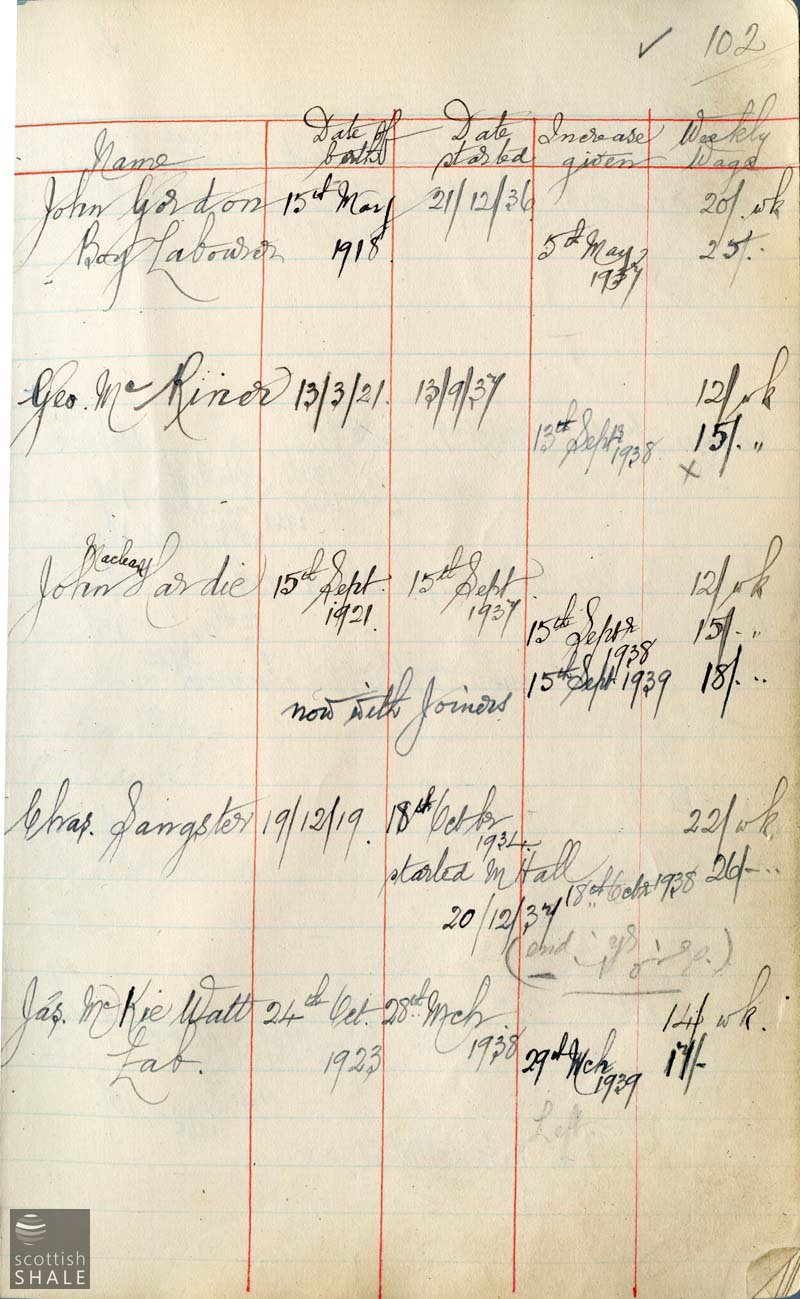 ✓ 102
Name Date of birth Date started Increase given Weekly Wage
John Gordon 15th May 21/12/36 20/. wk
Boy Labourer 1918. 5th May 1937 25/.-
Geo. Mc 13/3/21. 13/9/37 12/ wk
13th Septr 1938. 15/. „
x
Maclean
John Hardie 15th Sept. 1921. 15th Sept. 1937 12/ wk
15th Septr 1938 15/- „
15th Sept 1939 18/. „
now with Joiners
Chas. Sangster 19/12/19. 18th Octbr 1934. 22/ wk.
started M Hall 18th Octbr 1938 26/- „
20/12/37
(end
Jas. McKie Watt 24th Oct. 28th Mch. 14/ wk.
Lab. 1923 1938 29th Mch 1939 17/-
Left.
scottish
SHALE